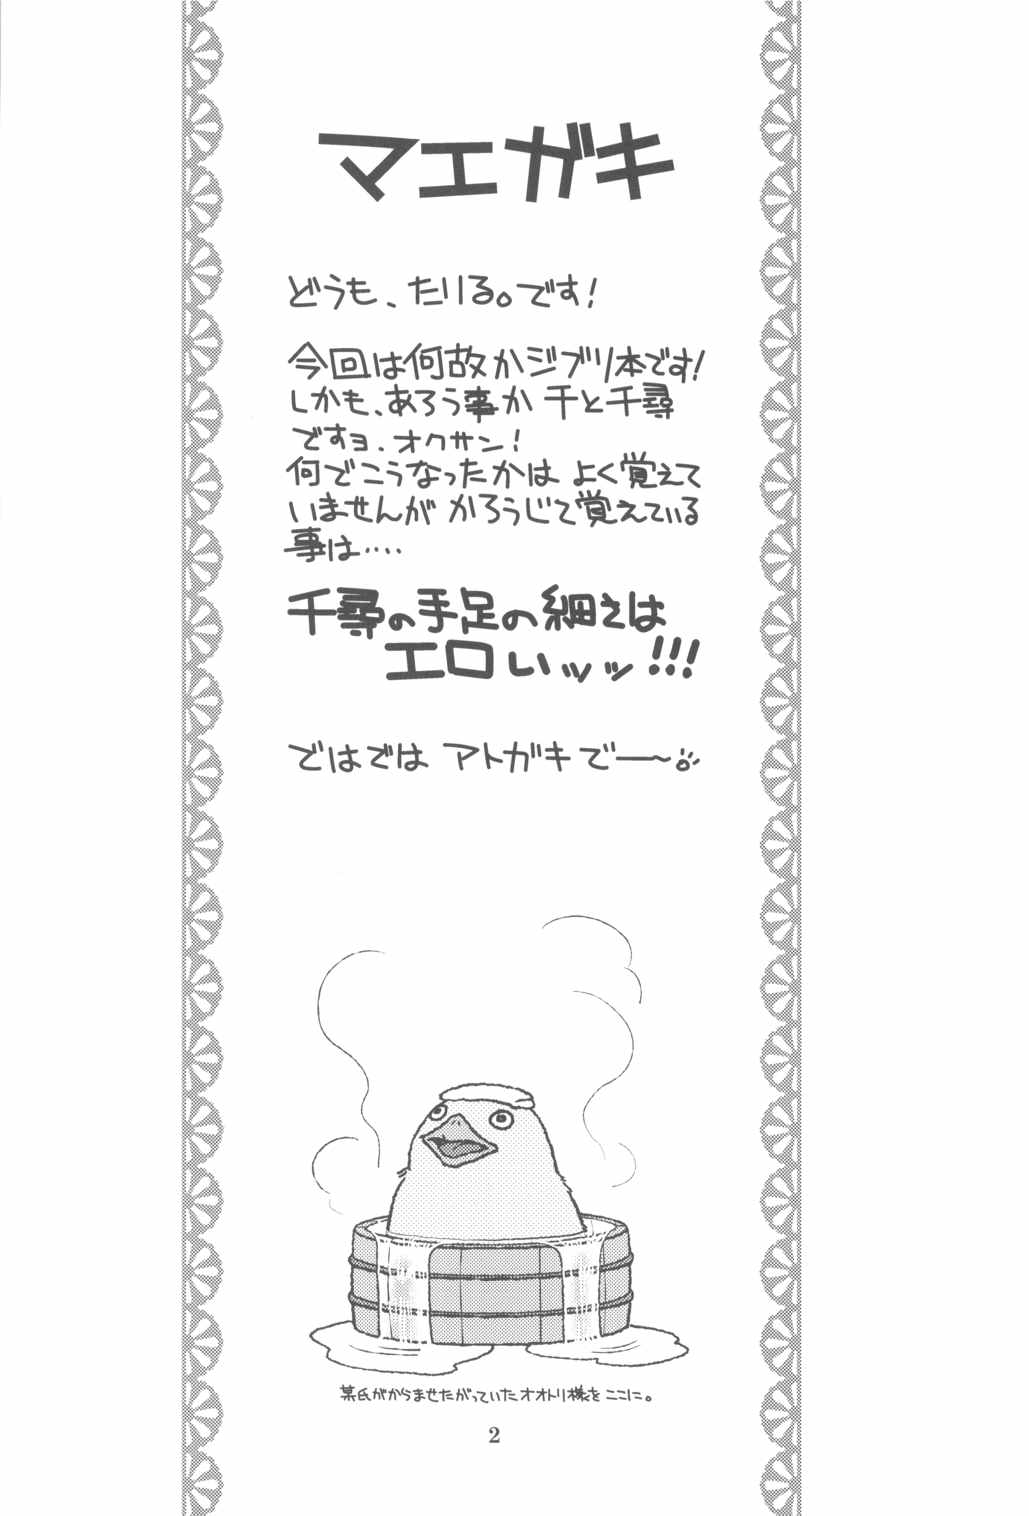 マエガキ
どうも、たりる。です!
今回は何故かジブリ本です!
しかも、あろう事か 千と千尋
ですヨ、オクサン!
何でこうなったかは よく覚えて
いませんが かろうじて覚えている
事は‥‥
ではでは アトガキで──〜
某氏がからませたがっていたオオトリ様をここに。
2